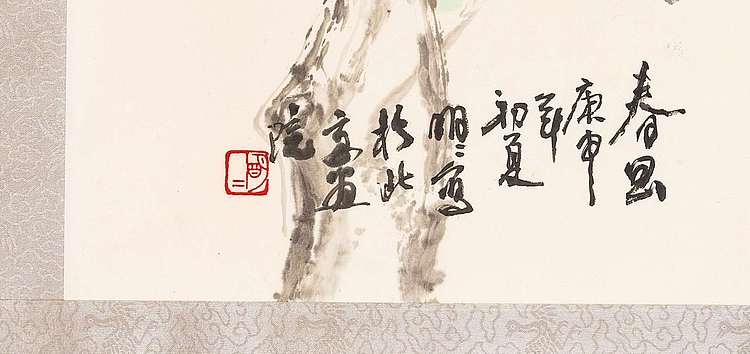 春思
庚申
年
初夏
明〻寫
於北
京画
院